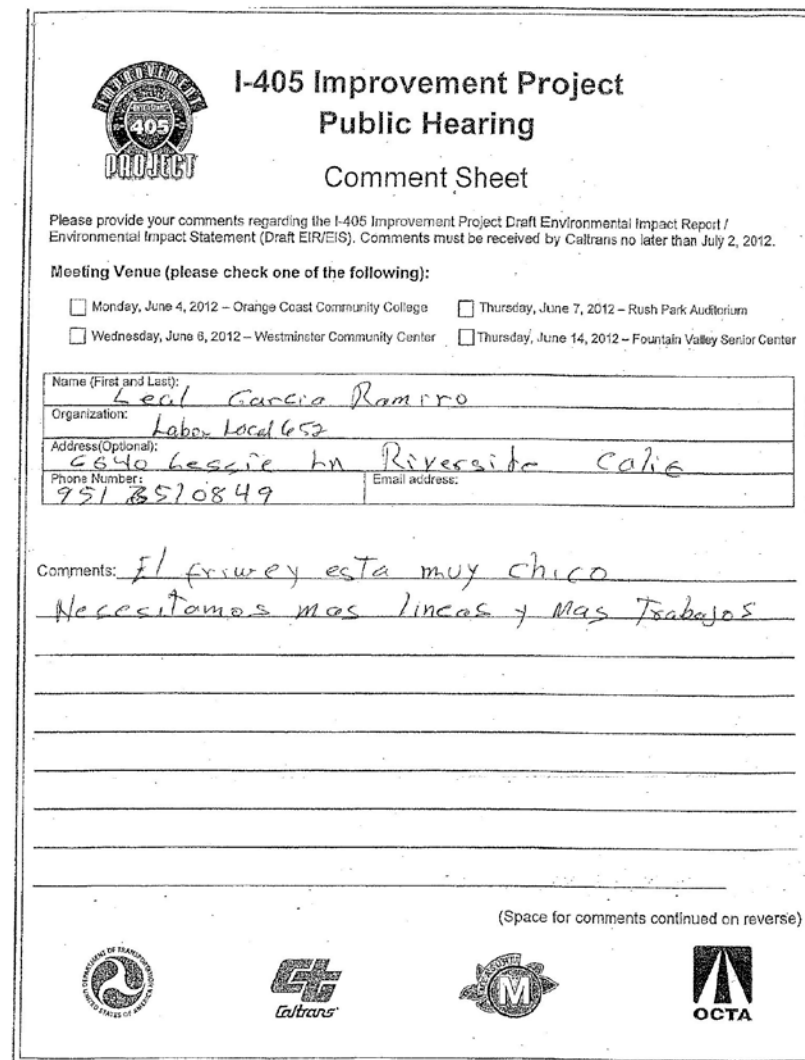 IMPROVEMENT
405
PROJECT
I-405 Improvement Project
Public Hearing
Comment Sheet
Please provide your comments regarding the I-405 Improvement Project Draft Environmental Impact Report /
Environmental Impact Statement (Draft EIR/EIS). Comments must be received by Caltrans no later than July 2, 2012.
Meeting Venue (please check one of the following):
Monday, June 4, 2012 – Orange Coast Community College
Thursday, June 7, 2012 – Rush Park Auditorium
Wednesday, June 6, 2012 – Westminster Community Center
Thursday, June 14, 2012 – Fountain Valley Senior Center
Name (First and Last):
Leal Garcia Ramiro
Organization:
Labor Local 652
Address(Optional):
6640 Lessie Ln Riverside Calif
Phone Number:
951 3510849
Email address:
Comments: El friwey esta muy chico
Necesitamos mas lineas y Mas Trabajos
(Space for comments continued on reverse)
DEPARTMENT OF TRANSPORTATION
UNITED STATES OF AMERICA
Caltrans
M
OCTA